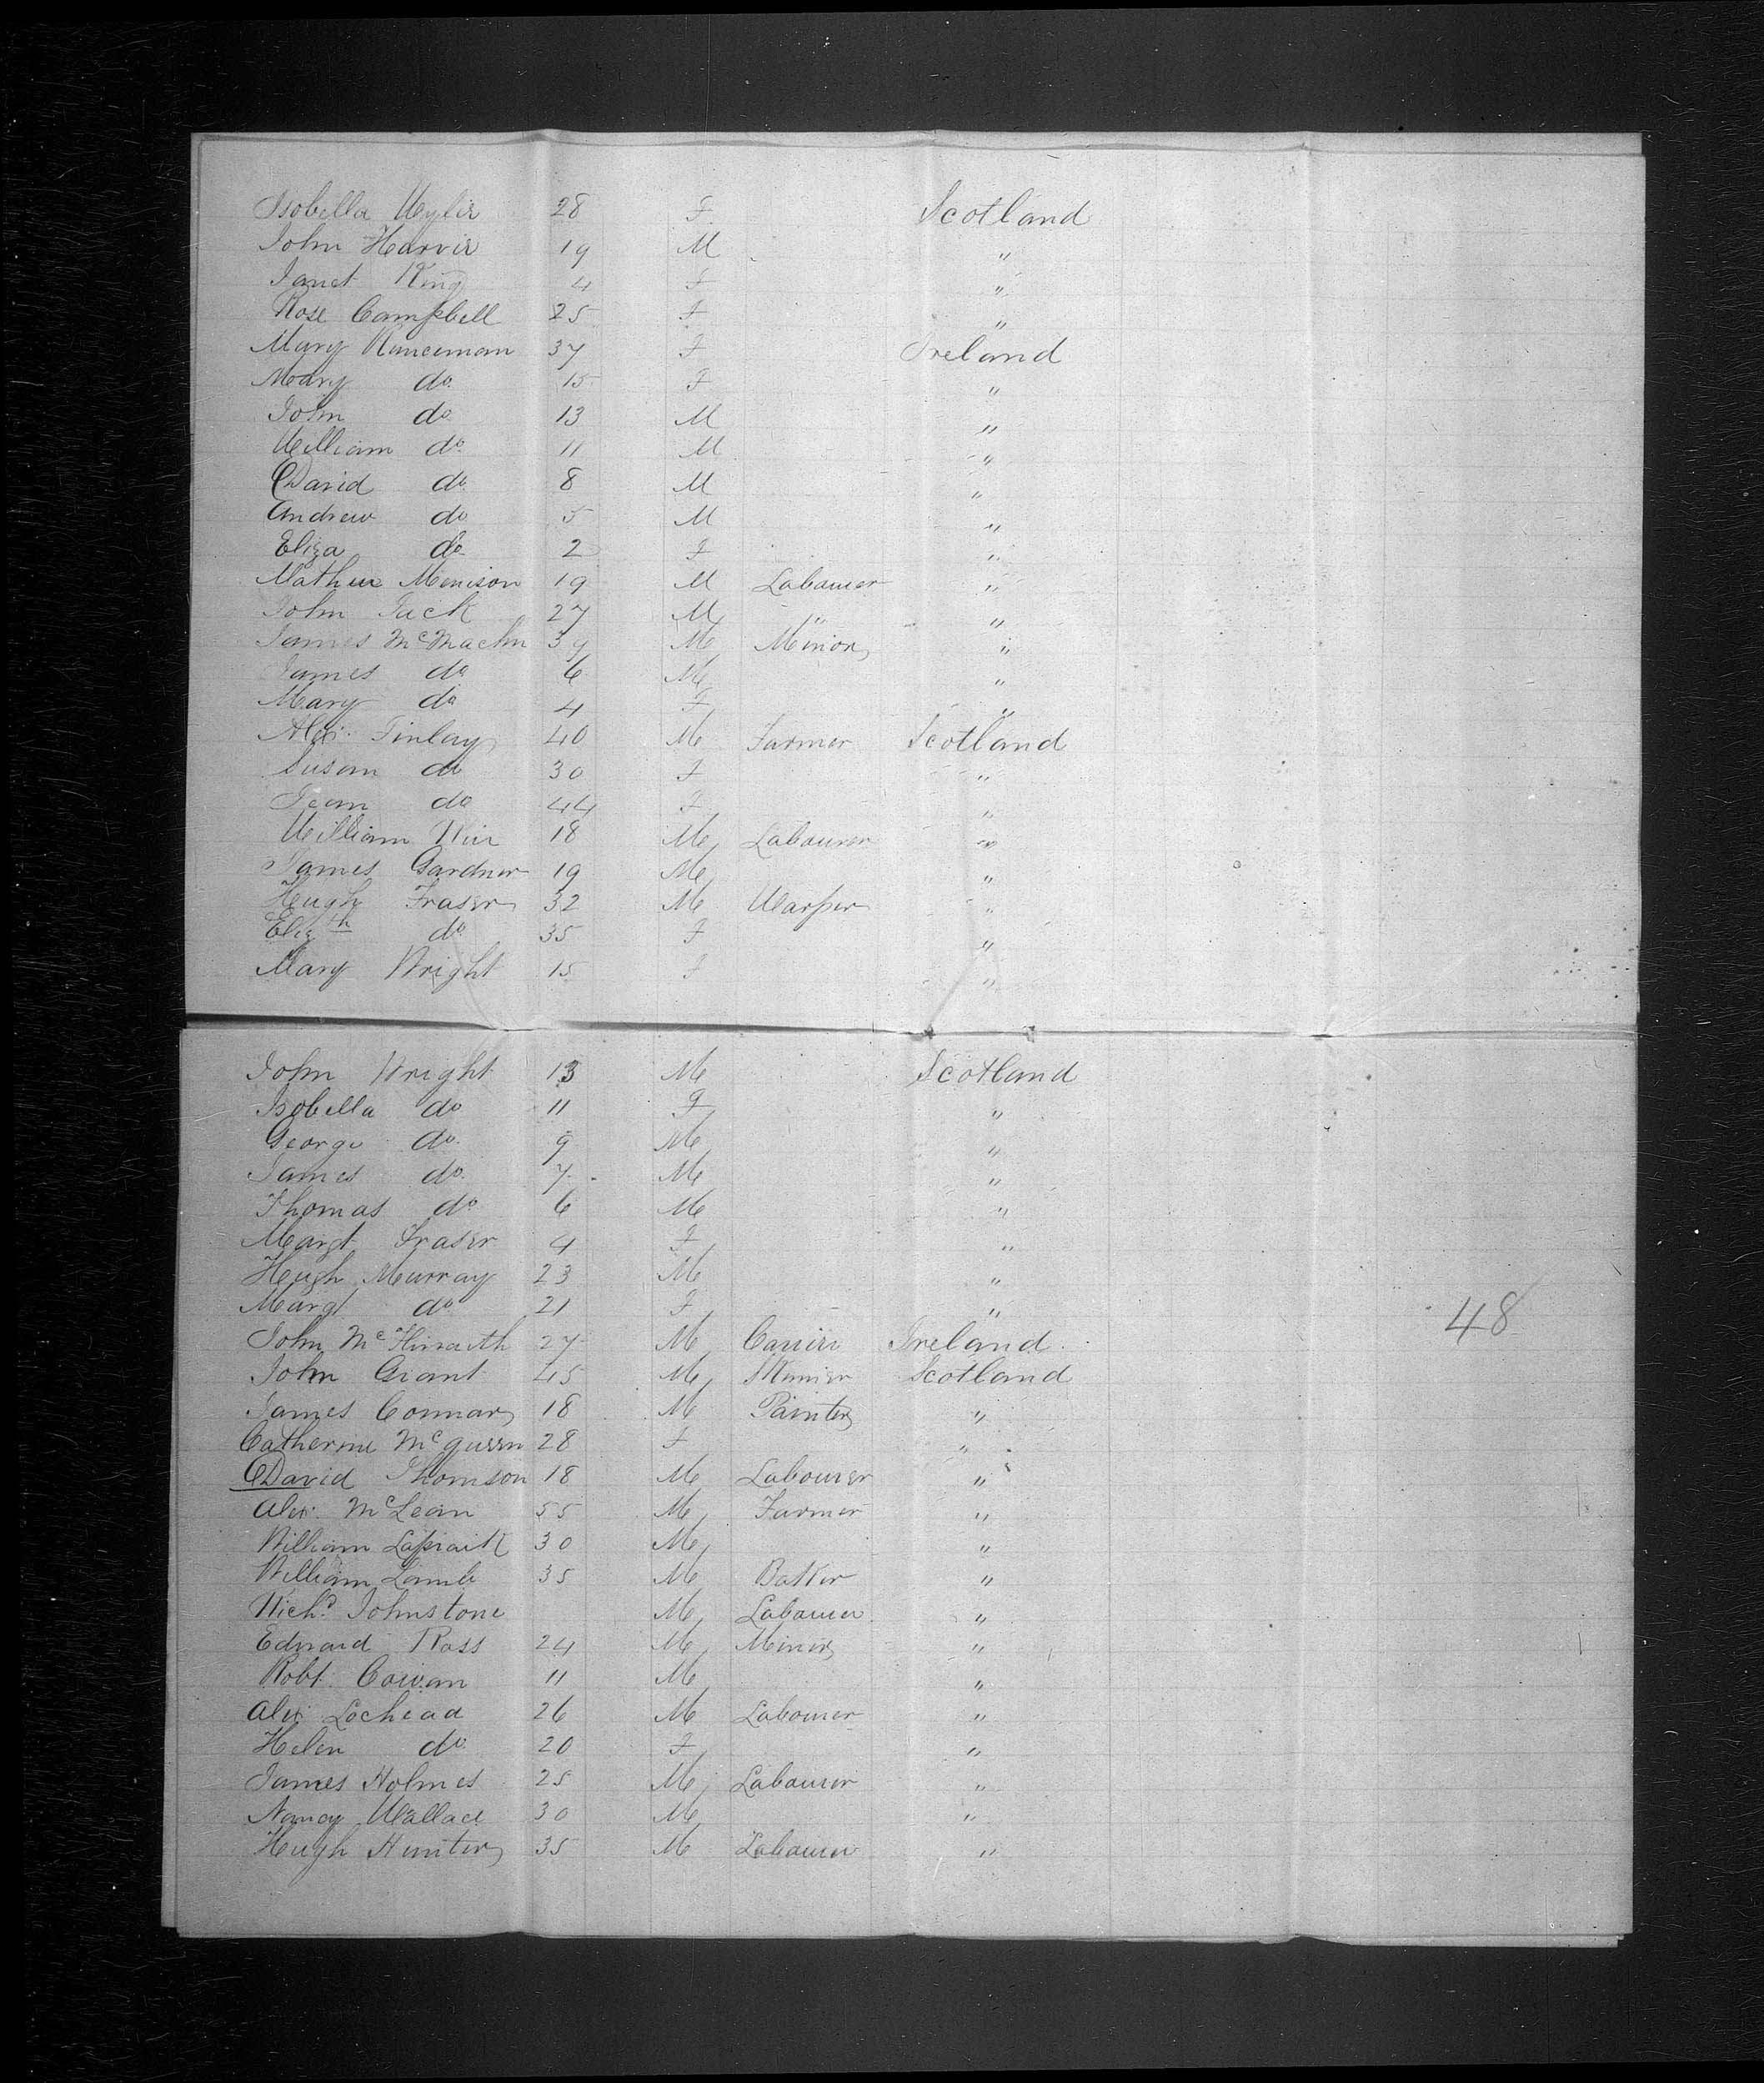 Isobella Wylie 28 F Scotland
John Harvie 19 M "
Janet King 4 F "
Rose Campbell 25 F "
Mary Runceman 37 F Ireland
Mary do 15 F "
John do 13 M "
William do 11 M "
David do 8 M "
Andrew do 5 M "
Eliza do 2 F "
Mathew Menison 19 M Labourer "
John Jack 27 M " "
James McMachn 39 M Minor "
James do 6 M "
Mary do 4 F "
Alex. Finlay 40 M Farmer Scotland
Susan do 30 F "
Jean do 44 F "
William 18 M Labourer "
James Gardner 19 M "
Hugh Fraser 32 M Warper "
Elizth do 35 F "
Mary Wright 15 F "
John Wright 13 M Scotland
Isobella do 11 F "
George do 9 M "
James do 7 M "
Thomas do 6 M "
Margt Fraser 4 F "
Hugh Murray 23 M "
Margt do 21 F "
48
John 27 M Ireland
John Grant 45 M Scotland
James Connar 18 M Painter "
Catherine McGueen 28 F "
David Thomson 18 M Labourer "
Alex. McLean 55 M Farmer "
William Lapraik 30 M "
William Lamb 35 M Baker "
Richd Johnstone M Labourer "
Edward Ross 24 M Miner "
Robt. Cowan 11 M "
Alex Lochead 26 M Labourer "
Helen do 20 F "
James Holmes 25 M Labourer "
Nancy Wallace 30 M "
Hugh Hunter 35 M Labourer "